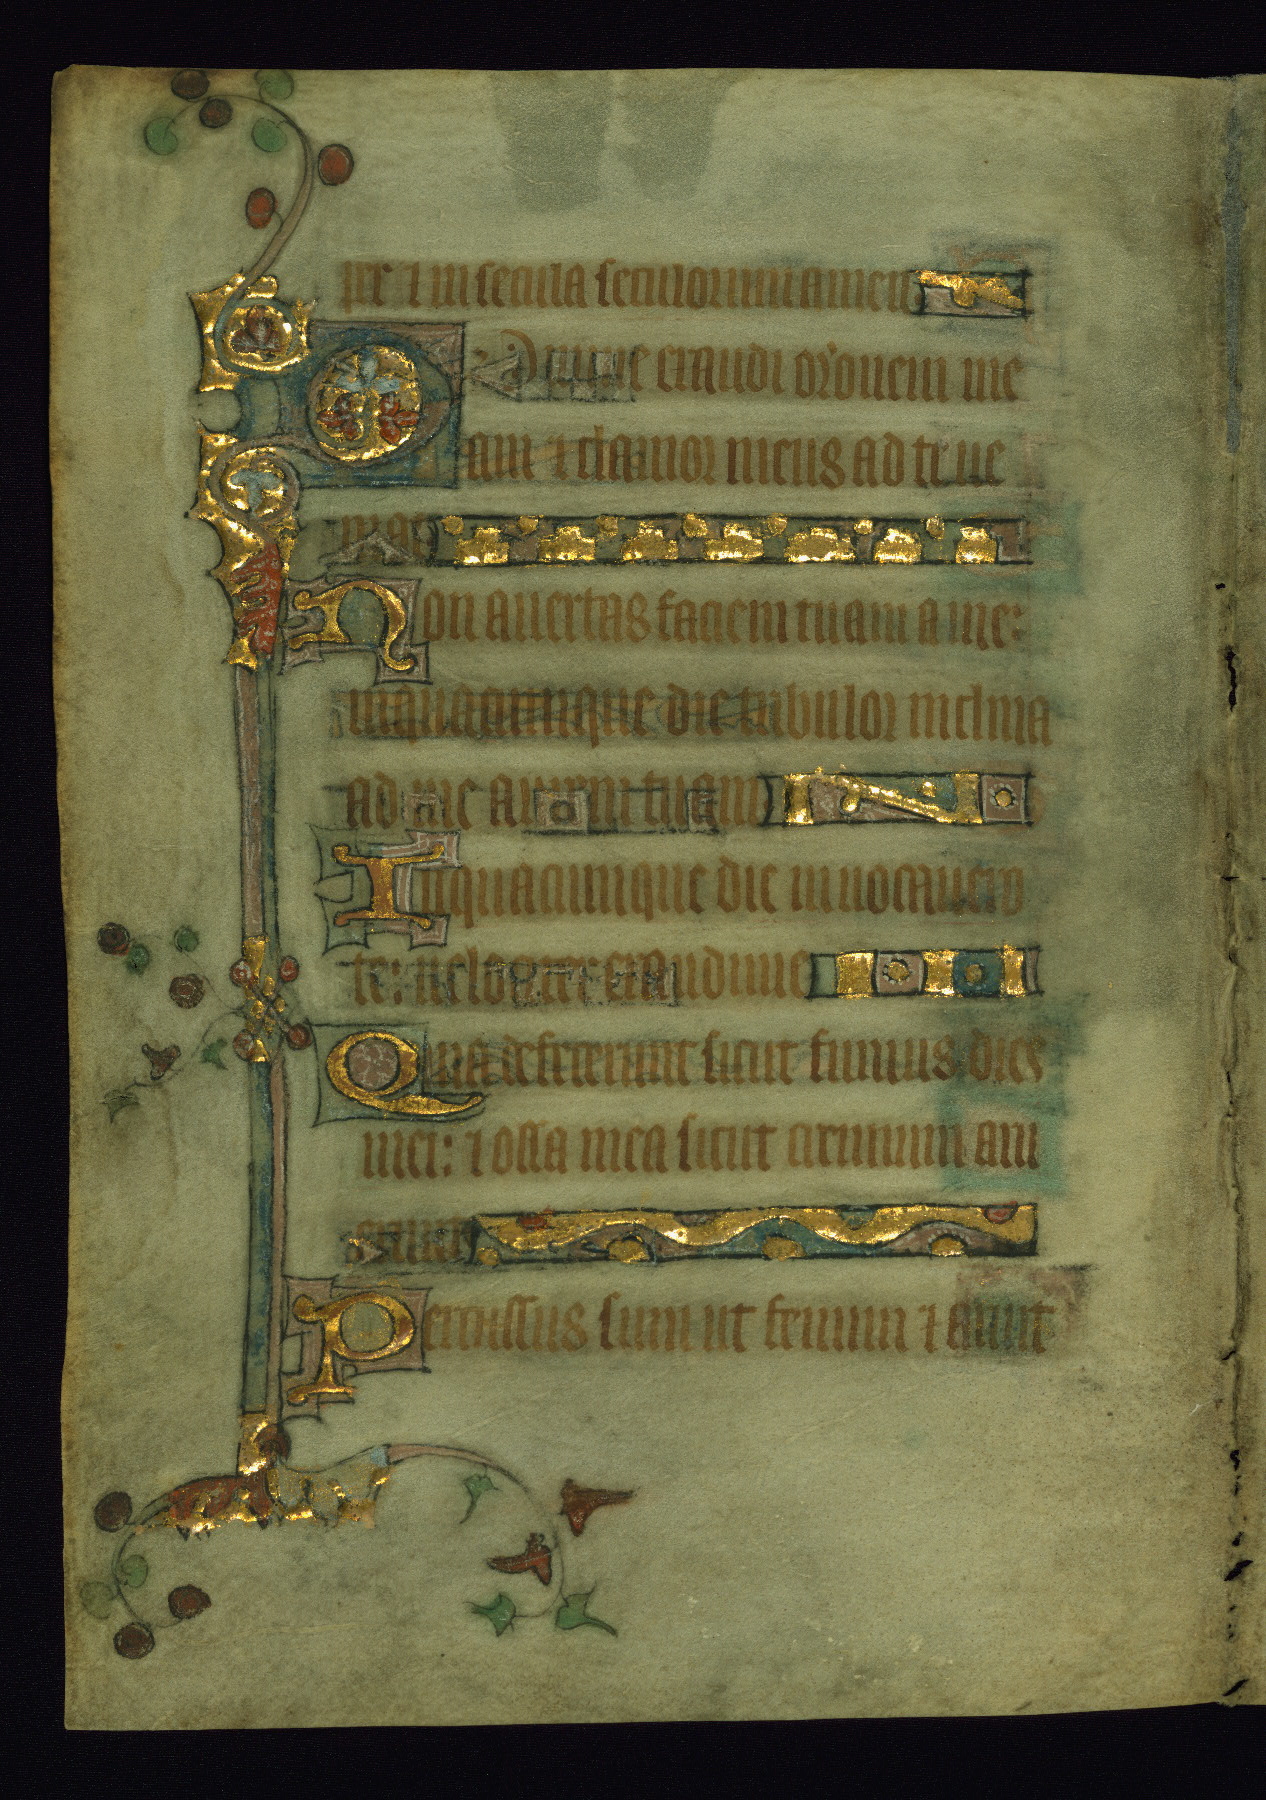 per ⁊ in secula seculorum amen
Domine exaudi or̄onem me
am ⁊ clamor meus ad te ue
niat
Non auertas faciem tuam a me:
inquacumque die tribulor inclina
ad me aurem tuam
Inquacumque die inuocauero
te: uelociter exaudi me
Quia defecerunt sicut fumus dies
mei: ⁊ ossa mea sicut cremium aru
erunt
Percussus sum ut fenum ⁊ aruit